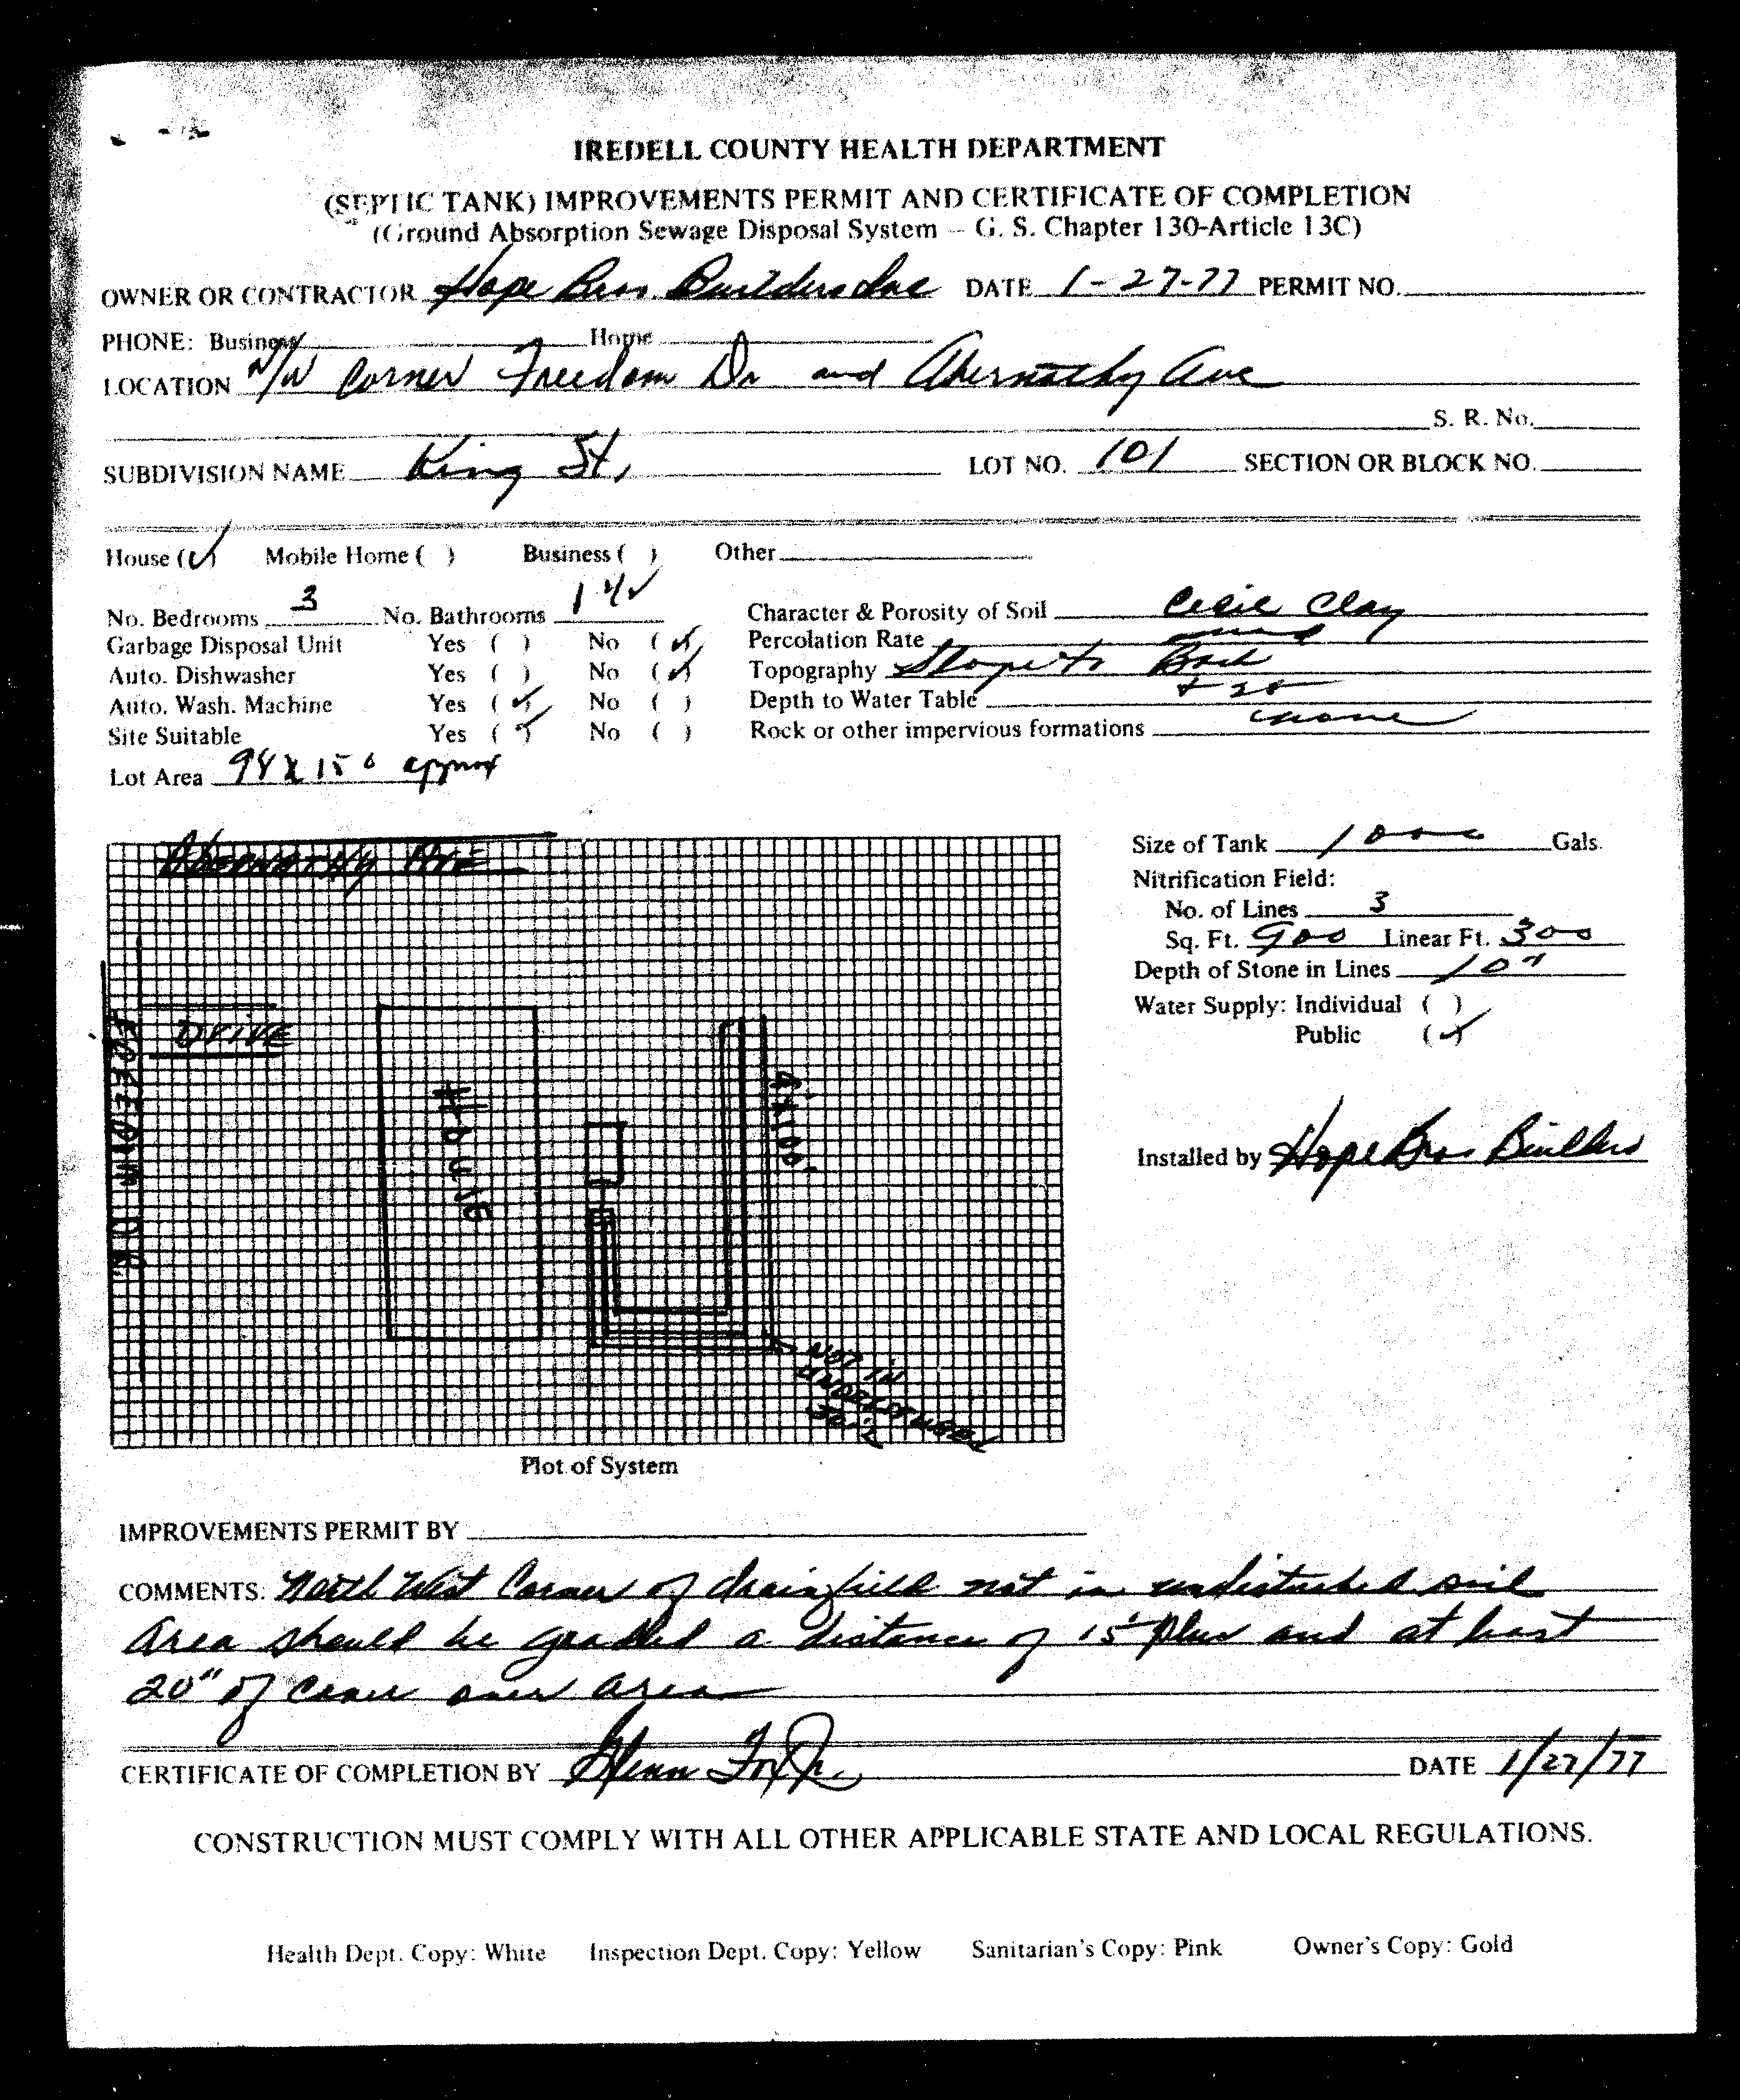 IREDELL COUNTY HEALTH DEPARTMENT
(SEPTIC TANK) IMPROVEMENTS PERMIT AND CERTIFICATE OF COMPLETION
(Ground Absorption Sewage Disposal System – G. S. Chapter 130-Article 13C)
OWNER OR CONTRACTOR Hope Bros. Builders Inc DATE 1-27-77 PERMIT NO.
PHONE: Business Home
LOCATION N/W Corner Freedom Dr and Abernathy Ave
S. R. No.
SUBDIVISION NAME King St, LOT NO. 101 SECTION OR BLOCK NO.
House (✓) Mobile Home ( ) Business ( ) Other
No. Bedrooms 3 No. Bathrooms 1 1/2 Character & Porosity of Soil Cecil Clay
Garbage Disposal Unit Yes ( ) No (✓) Percolation Rate
Auto. Dishwasher Yes ( ) No (✓) Topography Slope to Back
Auto. Wash. Machine Yes (✓) No ( ) Depth to Water Table + 20
Site Suitable Yes (✓) No ( ) Rock or other impervious formations none
Lot Area 94 X 150 approx
ABERNATHY AVE
DRIVE
FREEDOM DR.
HOUSE
NOT IN
UNDISTURBED
SOIL
Size of Tank 1000 Gals.
Nitrification Field:
No. of Lines 3
Sq. Ft. 900 Linear Ft. 300
Depth of Stone in Lines 10"
Water Supply: Individual ( )
Public (✓)
Installed by Hope Bros Builders
Plot of System
IMPROVEMENTS PERMIT BY
COMMENTS: North West Corner of drainfield not in undisturbed soil
Area should be graded a distance of 15' plus and at least
20" of cover over area
CERTIFICATE OF COMPLETION BY Glenn Fox Jr. DATE 1/27/77
CONSTRUCTION MUST COMPLY WITH ALL OTHER APPLICABLE STATE AND LOCAL REGULATIONS.
Health Dept. Copy: White Inspection Dept. Copy: Yellow Sanitarian's Copy: Pink Owner's Copy: Gold